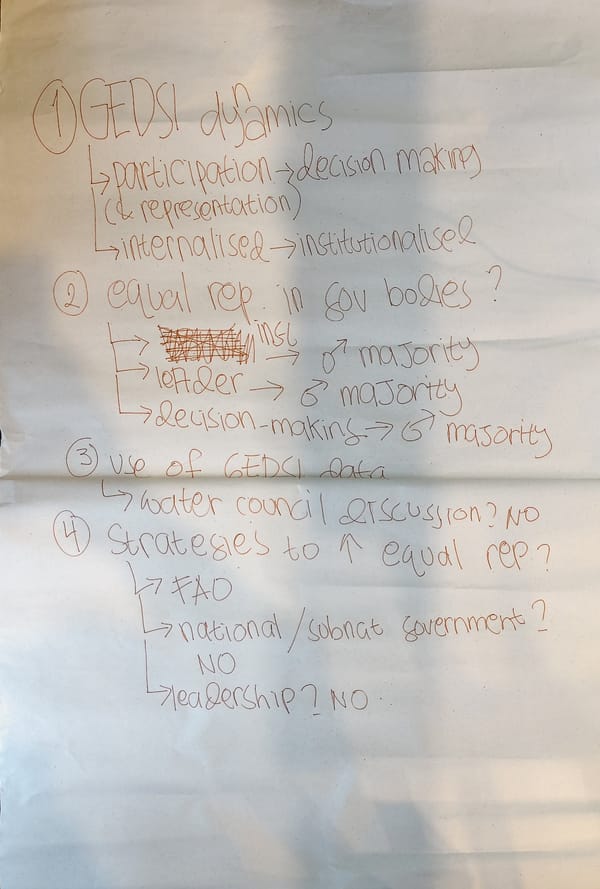 ① GEDSI dynamics
↳ participation → decision making
(& representation)
↳ internalised → institutionalised
② equal rep. in gov bodies?
↳ inst → ♂ majority
↳ leader → ♂ majority
↳ decision-making → ♂ majority
③ use of GEDSI data
↳ water council discussion? NO
④ Strategies to ↑ equal rep?
↳ FAO
↳ national/subnat government?
NO
↳ leadership? NO